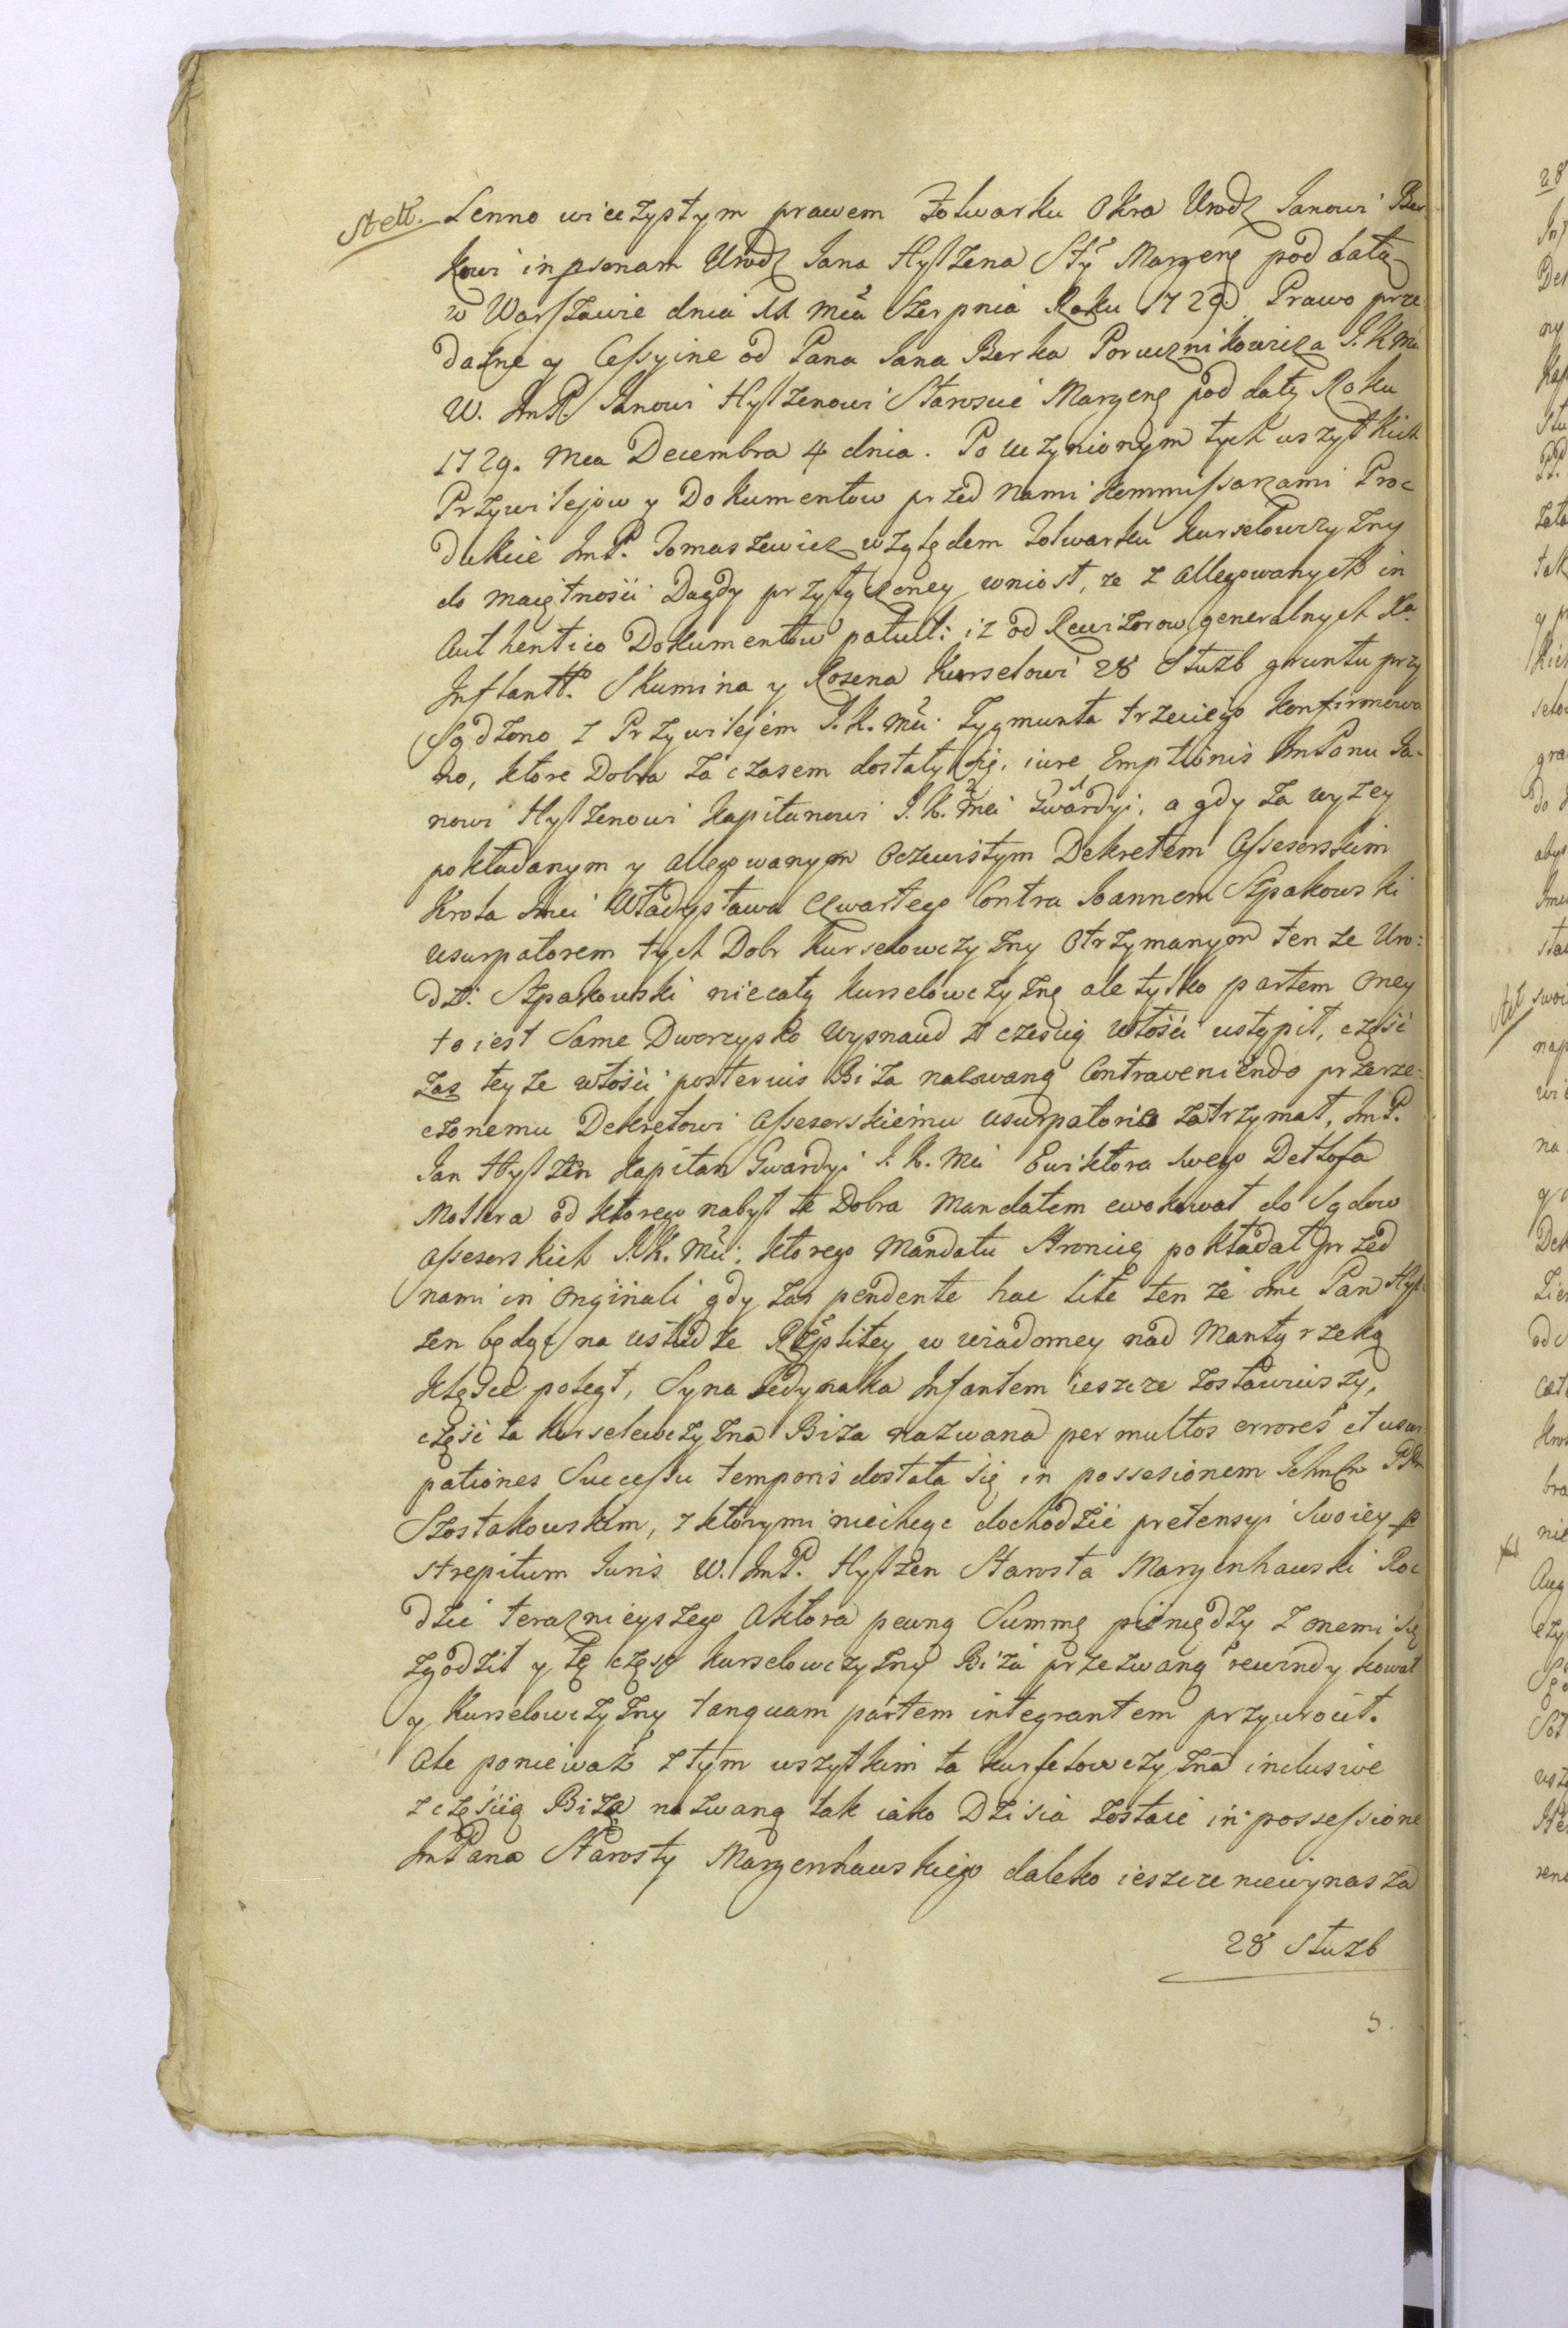 Lenno wieczystym prawem Folwarku Okra Urodz Janowi Ber
kowi in psonam Urodz Jana Hylzena Sty Maryeng pod datą
w Warszawie dnia 11 mca Sierpnia Roku 1729. Prawo prze
dażne y Cessyine od Pana Jana Berka Porucznikowicza J. K. Mci
W. ImP. Janowi Hylzenowi Staroscie Maryeng pod datą Roku
1729. mca Decembra 4 dnia. Po uczynionym tych wszytkich
Przywilejow y Dokumentow przed nami Kommissarzami Pro
dukcie ImP. Tomaszewicz względem Folwarku Kurselowczyzny
do maiętności Dagdy przyłączoney wniosł, że z allegowanych in
Authentico Dokumentow patuit: iż od Rewizorow generalnych Xa
Inflantt. Skumina y Rozena Kurselowi 28 Służb gruntu przy
sądzono z Przywilejem J. K. Mci Zygmunta trzeciego konfirmowa
no, ktore Dobra za czasem dostały się iure Emptionis ImPanu Ja-
nowi Hylzenowi Kapitanowi J. K. Mci Gwardyi, a gdy za wyżey
pokładanym y allegowanym Oczewistym Dekretem Assesorskim
Krola Jmci Władysława Czwartego Contra Joannem Szpakowski
usurpatorem tych Dobr Kurselowczyzny otrzymanym ten że Uro:
dz: Szpakowski niecałą Kurselowczyznę ale tylko partem oney
to iest Same Dworzysko Wysnaud z częścią włości ustąpił, część
zaś teyże włości posterius Biża nazwaną Contraveniendo przerze-
czonemu Dekretowi Assesorskiemu usurpatorie zatrzymał, ImP.
Jan Hylzen Kapitan Gwardyi J. K. Mci Ewiktora swego Detlofa
Mollera od ktorego nabył te Dobra Mandatem ewokował do Sądow
Assesorskich J. K. Mci: ktorego Mandatu Stronicę pokładał przed
nami in Originali gdy zas pendente hac lite ten że Jmc Pan Hyl
zen będąc na usłudze Rzplitey w wiadomey nad Mątwy rzeką
klęsce poległ, Syna Jedynaka Infantem ieszcze zostawiwszy,
część ta Kurselowczyzna Biża nazwana per multos errores et usur
pationes Successu temporis dostała się in possesionem Ichmcw PPn
Szostakowskim, z ktorymi niechcąc dochodzić pretensyi Swoiey p
strepitum Juris W. ImP. Hylzen Starosta Maryenhauski Ro
dzic teraznieyszego Aktora pewną Summą pieniędzy z onemi się
zgodził y tę część Kurselowczyzny Biża przezwaną rewindykował
y Kurselowczyzny tanquam partem integrantem przywrocił.
Ale ponieważ z tym wszytkim ta Kurselowczyzna inclusive
z częścią Biżą nazwaną tak iako Dzisia zostaie in possessione
ImPana Starosty Maryenhauskiego daleko ieszcze niewynasza
28 Służb